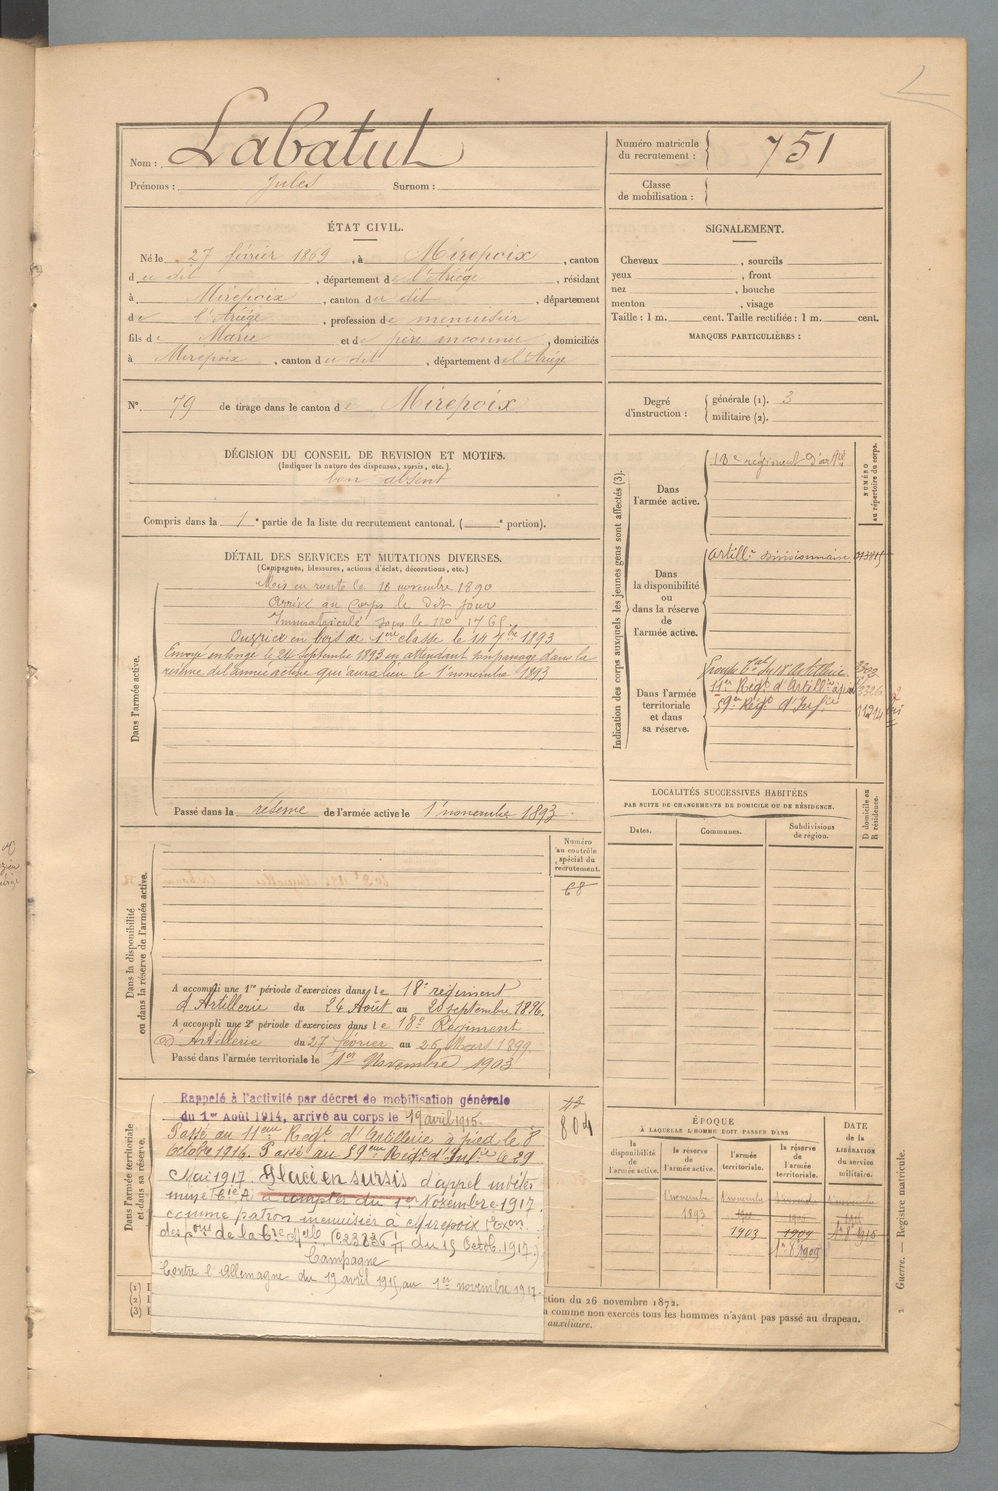 Nom : Labatut
Prénoms : Jules Surnom :
ÉTAT CIVIL.
Né le 27 février 1869, à Mirepoix, canton
du dit, département de l'Ariège, résidant
à Mirepoix, canton du dit, département
de l'Ariège, profession de menuisier
fils de Marie et de père inconnu, domiciliés
à Mirepoix, canton du dit, département de l'Ariège
N° 79 de tirage dans le canton de Mirepoix
DÉCISION DU CONSEIL DE REVISION ET MOTIFS.
(Indiquer la nature des dispenses, sursis, etc.)
bon absent
Compris dans la 1e partie de la liste du recrutement cantonal. ( e portion).
DÉTAIL DES SERVICES ET MUTATIONS DIVERSES.
(Campagnes, blessures, actions d'éclat, décorations, etc.)
Dans l'armée active.
Mis en route le 16 novembre 1890
Arrivé au Corps le dit jour
Immatriculé sous le no 1765
Ouvrier en bois de 1ère classe le 14 7bre 1893
Envoyé en congé le 24 septembre 1893 en attendant son passage dans la
réserve de l'armée active qui aura lieu le 1 novembre 1893
Passé dans la réserve de l'armée active le 1 novembre 1893
Dans la disponibilité
ou dans la réserve de l'armée active.
Numéro
au contrôle
spécial du
recrutement.
68
A accompli une 1re période d'exercices dans le 18e régiment
d'Artillerie du 24 Août au 20 septembre 1896.
A accompli une 2e période d'exercices dans le 18e Régiment
d'Artillerie du 27 février au 26 Mars 1899
Passé dans l'armée territoriale le 1er Novembre 1903
Dans l'armée territoriale
et dans sa réserve.
804
Rappelé à l'activité par décret de mobilisation générale
du 1er Août 1914, arrivé au corps le 19 avril 1915.
Passé au 11ème Régt d'Artillerie à pied le 8
octobre 1916. Passé au 59ème Régt d'Infie le 29
Mai 1917. Placé en sursis d'appel
à compter du 1er Novembre 1917.
comme patron menuisier à Mirepoix
du 15 Octob. 1917.)
Campagne
Contre l'Allemagne du 19 avril 1915 au 1er novembre 1917.
(1) I
(2) I
(3) I
ction du 26 novembre 1872.
a comme non exercés tous les hommes n'ayant pas passé au drapeau.
auxiliaire.
Numéro matricule
du recrutement : 751
Classe
de mobilisation :
SIGNALEMENT.
Cheveux , sourcils
yeux , front
nez , bouche
menton , visage
Taille : 1 m. cent. Taille rectifiée : 1 m. cent.
MARQUES PARTICULIÈRES :
Degré
d'instruction :
générale (1). 3
militaire (2).
Indication des corps auxquels les jeunes gens sont affectés (3).
NUMÉRO
au répertoire du corps.
Dans
l'armée active.
18e régiment d'artie
Dans
la disponibilité
ou
dans la réserve
de
l'armée active.
Artillie divisionnaire
Dans l'armée
territoriale
et dans
sa réserve.
Groupe Tal du 18e Artillerie
11er Régt d'Artillie à pied
59e Régt d'Infie
11214
LOCALITÉS SUCCESSIVES HABITÉES
PAR SUITE DE CHANGEMENTS DE DOMICILE OU DE RÉSIDENCE.
Dates. Communes. Subdivisions
de région.
D domicile ou
R résidence.
ÉPOQUE
À LAQUELLE L'HOMME DOIT PASSER DANS
DATE
de la
LIBÉRATION
du service
militaire.
la
disponibilité
de
l'armée active.
la
réserve de
l'armée active.
l'armée
territoriale.
la
réserve de
l'armée
territoriale.
1 novembre
1893
1 novembre
1903
1909
Guerre. — Registre matricule.